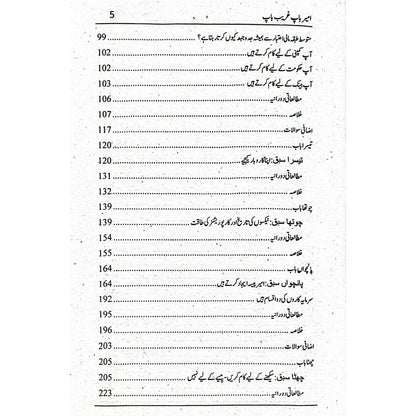 امیر باپ غریب باپ 5
متوسط طبقہ مالی اعتبار سے ہمیشہ جدوجہد کیوں کرتا رہتا ہے؟ 99
آپ کمپنی کے لیے کام کرتے ہیں 102
آپ حکومت کے لیے کام کرتے ہیں 102
آپ بینک کے لیے کام کرتے ہیں 103
مطالعاتی دورانیہ 106
خلاصہ 107
اضافی سوالات 117
تیسرا باب 120
تیسرا سبق: اپنا کاروبار کیجیے 120
مطالعاتی دورانیہ 131
خلاصہ 132
چوتھا باب 139
چوتھا سبق: ٹیکسوں کی تاریخ اور کارپوریشنز کی طاقت 139
مطالعاتی دورانیہ 154
خلاصہ 155
پانچواں باب 164
پانچواں سبق: امیر پیسہ ایجاد کرتے ہیں 164
سرمایہ کاروں کی دو اقسام ہیں 192
مطالعاتی دورانیہ 195
خلاصہ 196
اضافی سوالات 203
چھٹا باب 205
چھٹا سبق: سیکھنے کے لیے کام کریں- پیسے کے لیے نہیں 205
مطالعاتی دورانیہ 223